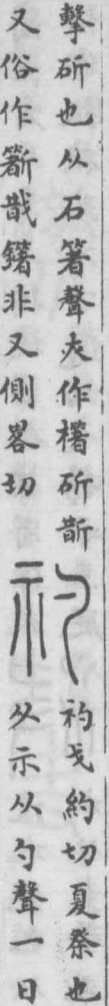 擊斫也从石箸聲夫作櫡斫斮
又俗作簖㦸鐯非又側畧切
礿
礿弋約切夏祭也
从示从勺聲一曰